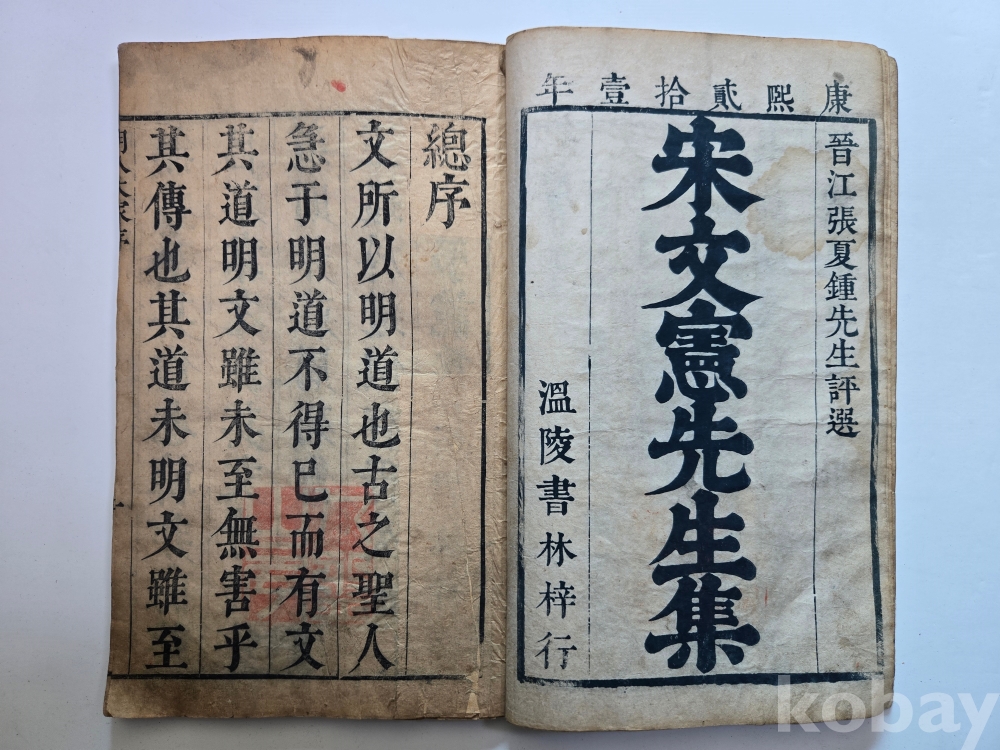 康熙貳拾壹年
晉江張夏鍾先生評選
宋文憲先生集
溫陵書林梓行
總序
文所以明道也古之聖人
急于明道不得已而有文
其道明文雖未至無害乎
其傳也其道未明文雖至
kobay